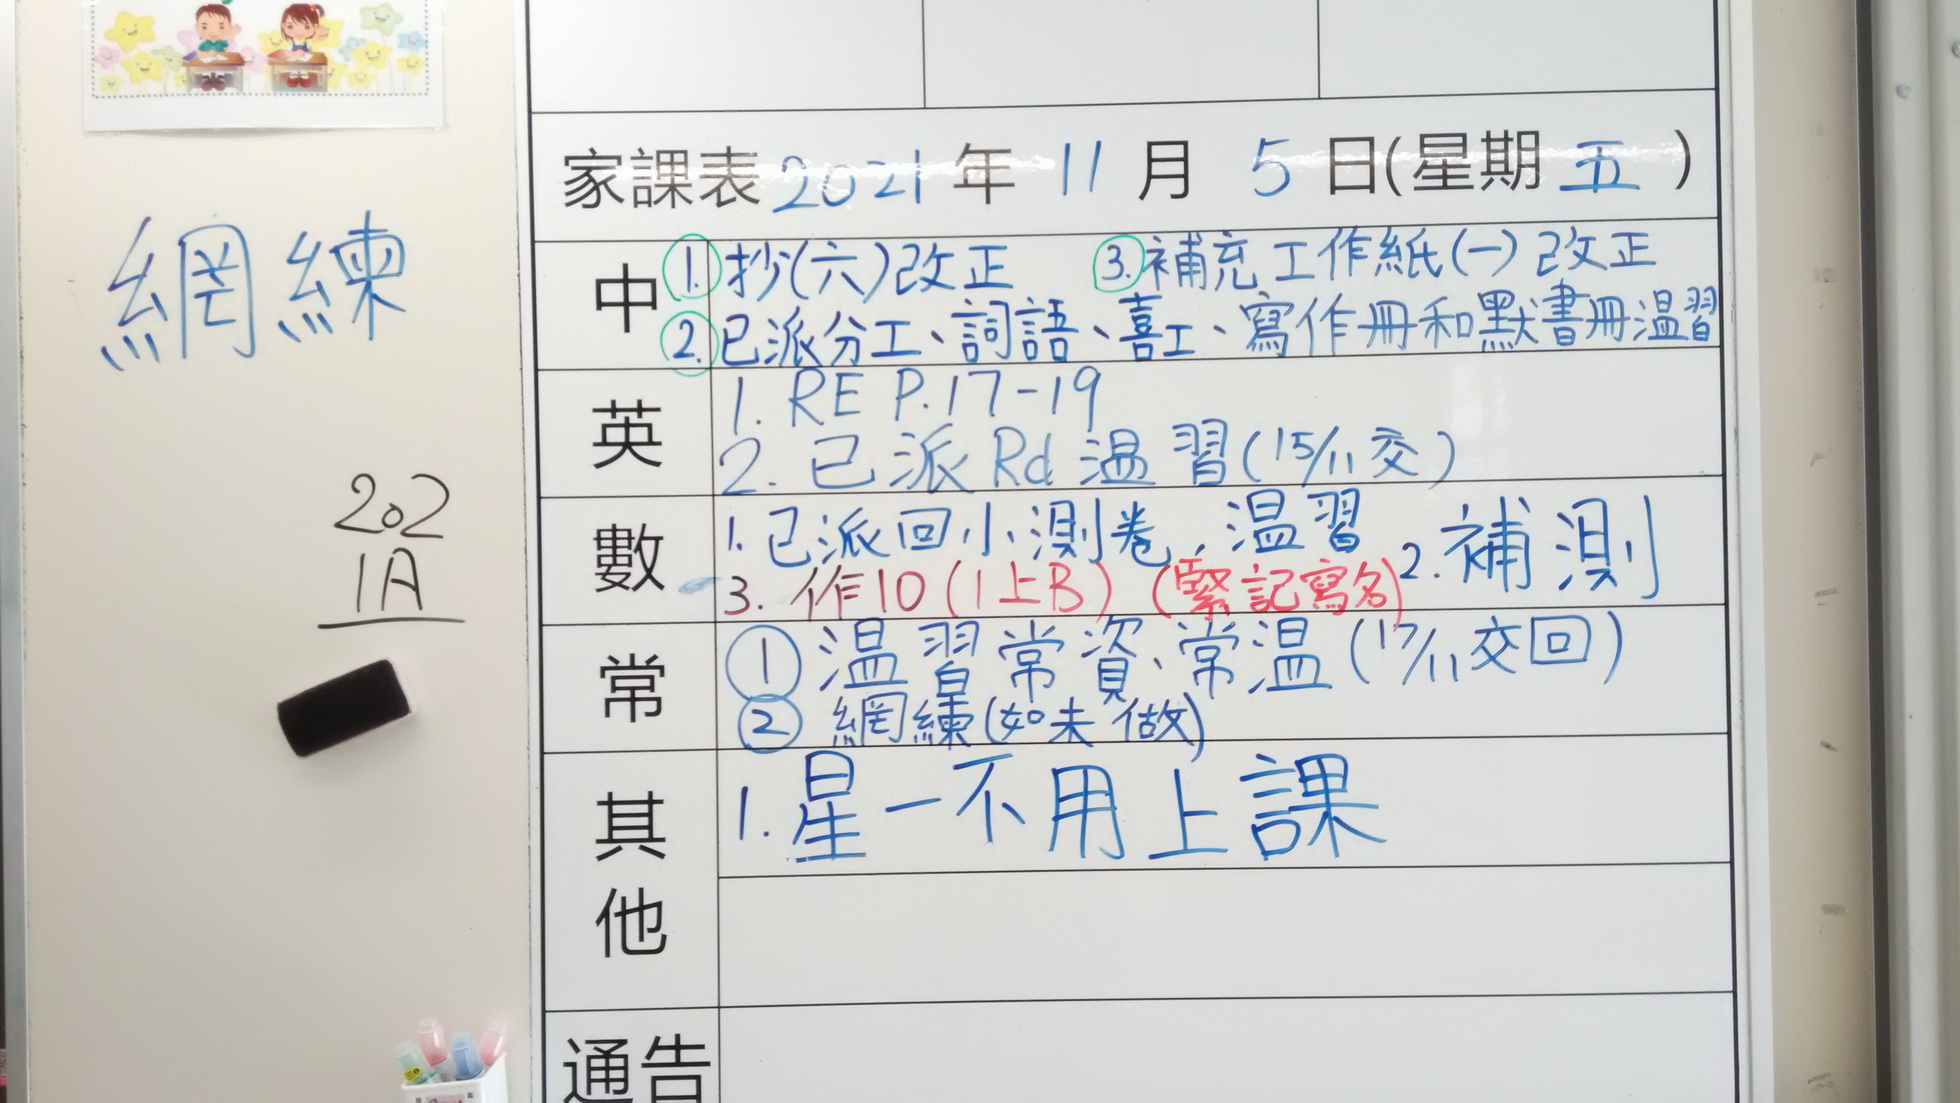 家課表 2021 年 11 月 5 日(星期 五 )
網練
中
1. 抄(六)改正 3. 補充工作紙(一)改正
2. 已派分工、詞語、喜工、寫作冊和默書冊温習
英
1. RE P.17-19
2. 已派 Rd 温習(15/11 交)
202
1A
數
1. 已派回小測卷，温習 2. 補測
3. 作10(1上B)(緊記寫名)
常
① 温習常資、常温(17/11交回)
② 網練(如未做)
其他
1. 星一不用上課
通告